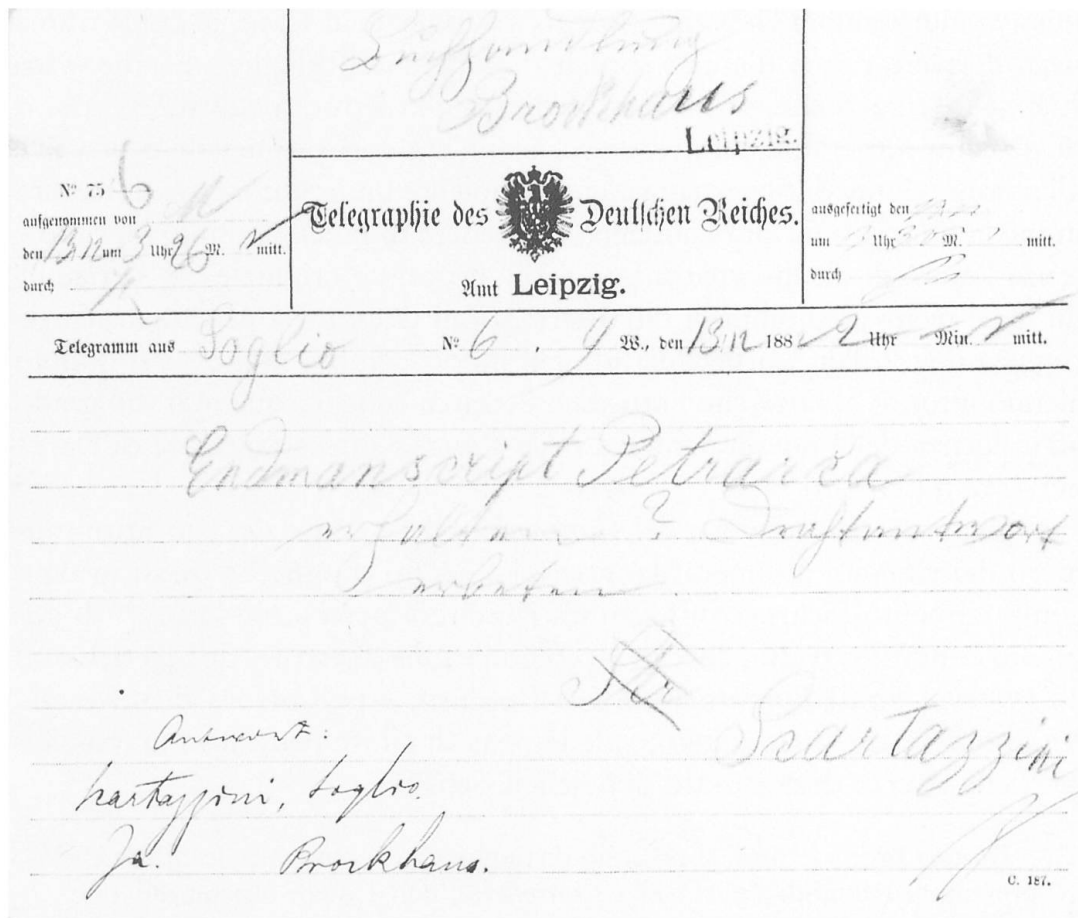 Buchhandlung
Brockhaus
Leipzig.
Nº 75 6
aufgenommen von
den 13/12 um 3 Uhr 26 M. mitt.
durch
Telegraphie des Deutschen Reiches.
Amt Leipzig.
ausgefertigt den
um Uhr M. mitt.
durch
Telegramm aus Soglio Nº 6. 9 W., den 13/12 188 2 Uhr Min. mitt.
Endmanscript Petrarca
erhalten? Drahtantwort
erbeten
Scartazzini
Antwort:
Scartazzini, Soglio.
Ja. Brockhaus.
C. 187.